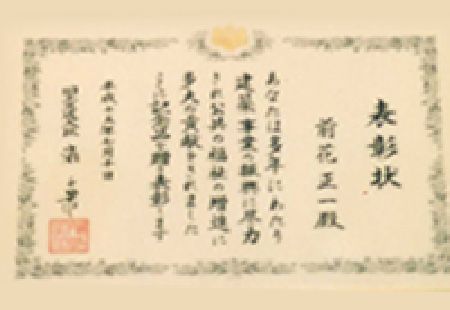 表彰状
前花正一殿
あなたは多年にわたり
建築事業の振興に尽力
され公共の福祉の増進に
多大の貢献をされました
よって記念品を贈り表彰します
平成十五年七月十日